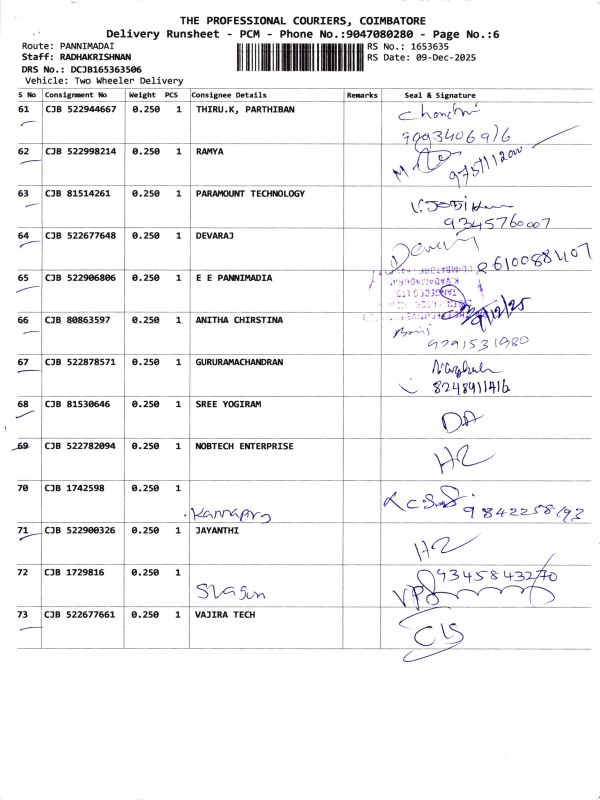 THE PROFESSIONAL COURIERS, COIMBATORE
Delivery Runsheet - PCM - Phone No.:9047080280 - Page No.:6
Route: PANNIMADAI RS No.: 1653635
Staff: RADHAKRISHNAN RS Date: 09-Dec-2025
DRS No.: DCJB165363506
Vehicle: Two Wheeler Delivery
S No Consignment No Weight PCS Consignee Details Remarks Seal & Signature
61 CJB 522944667 0.250 1 THIRU.K, PARTHIBAN
9093406916
62 CJB 522998214 0.250 1 RAMYA
63 CJB 81514261 0.250 1 PARAMOUNT TECHNOLOGY
9345760007
64 CJB 522677648 0.250 1 DEVARAJ
8610088407
65 CJB 522906806 0.250 1 E E PANNIMADIA
9/12/25
66 CJB 80863597 0.250 1 ANITHA CHIRSTINA
9791531980
67 CJB 522878571 0.250 1 GURURAMACHANDRAN
68 CJB 81530646 0.250 1 SREE YOGIRAM DA
69 CJB 522782094 0.250 1 NOBTECH ENTERPRISE H2
70 CJB 1742598 0.250 1
9842258193
71 CJB 522900326 0.250 1 JAYANTHI H2
72 CJB 1729816 0.250 1 9345843270
73 CJB 522677661 0.250 1 VAJIRA TECH CLS